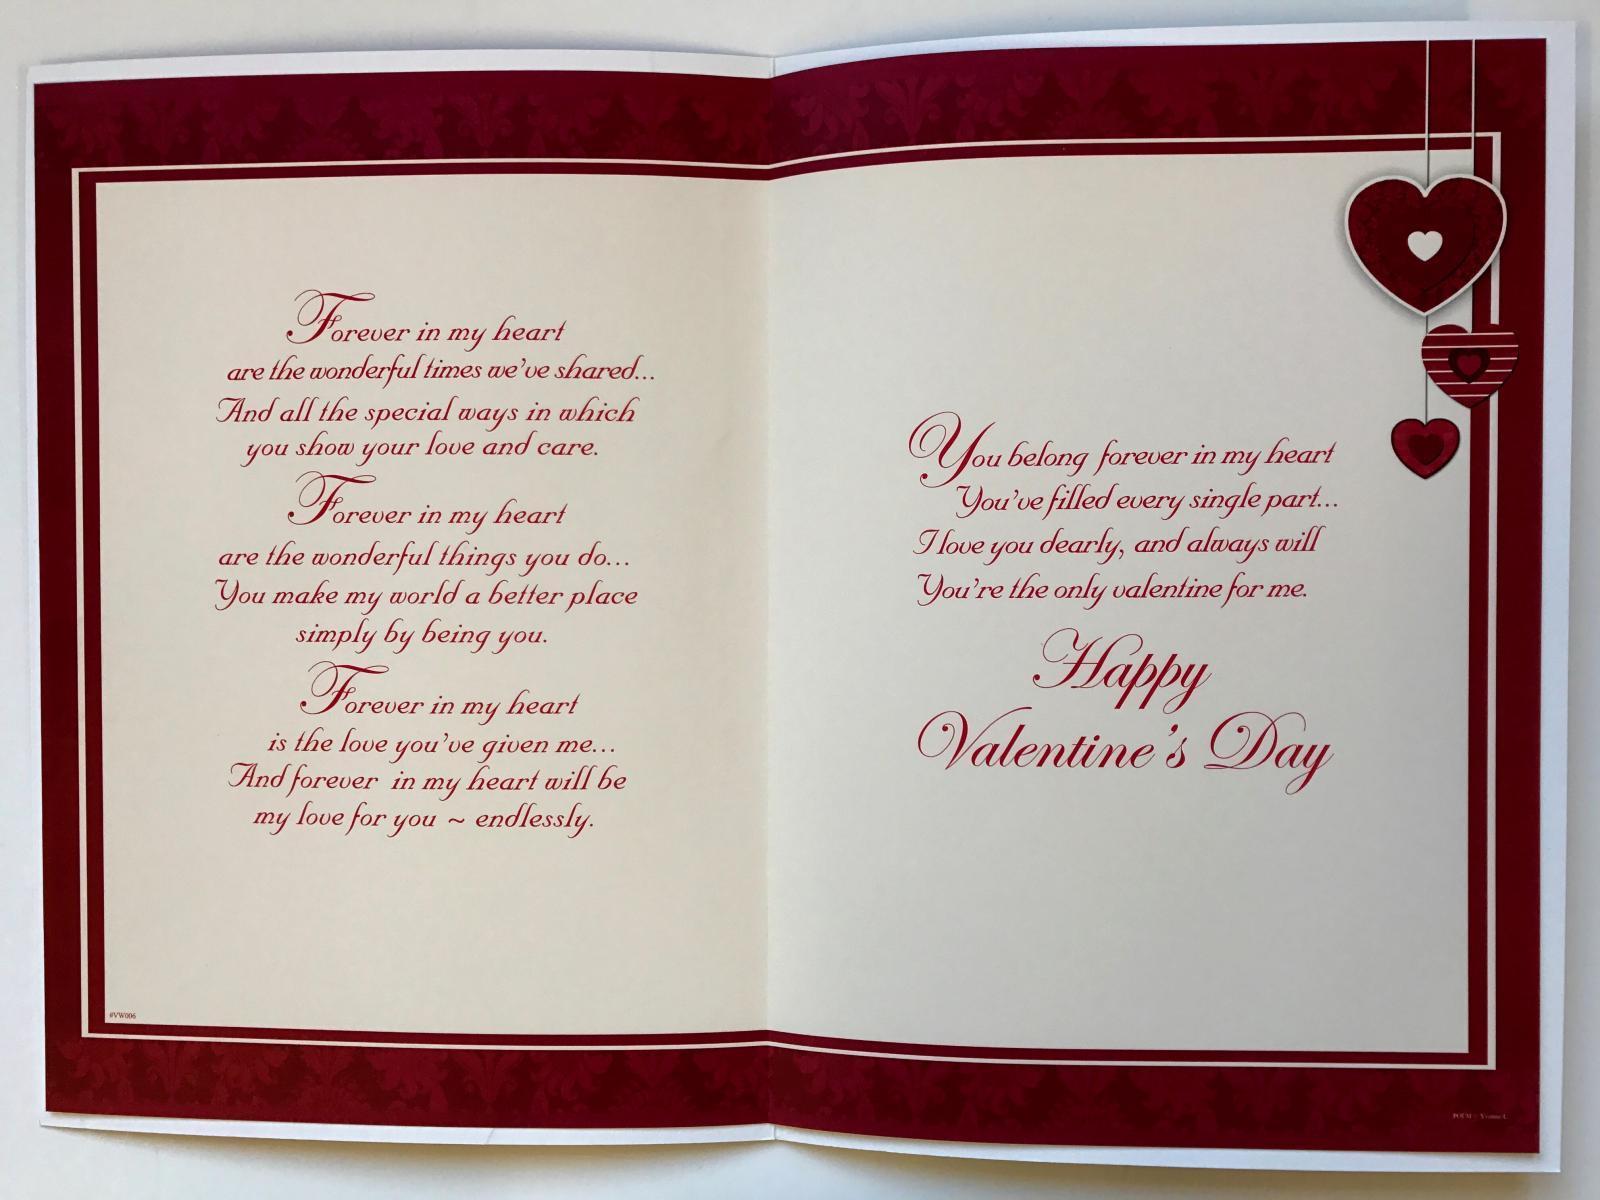 Forever in my heart
are the wonderful times we've shared...
And all the special ways in which
you show your love and care.
Forever in my heart
are the wonderful things you do...
You make my world a better place
simply by being you.
Forever in my heart
is the love you've given me...
And forever in my heart will be
my love for you ~ endlessly.
#VW006
You belong forever in my heart
You've filled every single part...
I love you dearly, and always will
You're the only valentine for me.
Happy
Valentine's Day
POEM